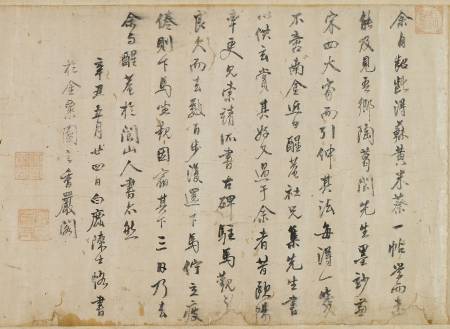 余自髫齔得蘇黃米蔡一帖學而未
能及見吾鄉陶葛閬先生墨妙兼
宋四大家而引伸其法每得一箋
不啻南金近白醒菴社兄集先生書
以供玄賞其好又過于余者昔歐陽
率更見索靖所書古碑駐馬觀之
良久而去數百步復還下馬佇立疲
倦則下馬坐觀因宿其下三日乃去
余與醒菴於閬山人書亦然
辛丑五月廿四日白鹿陳士恪書
於金粟園之香嚴閣